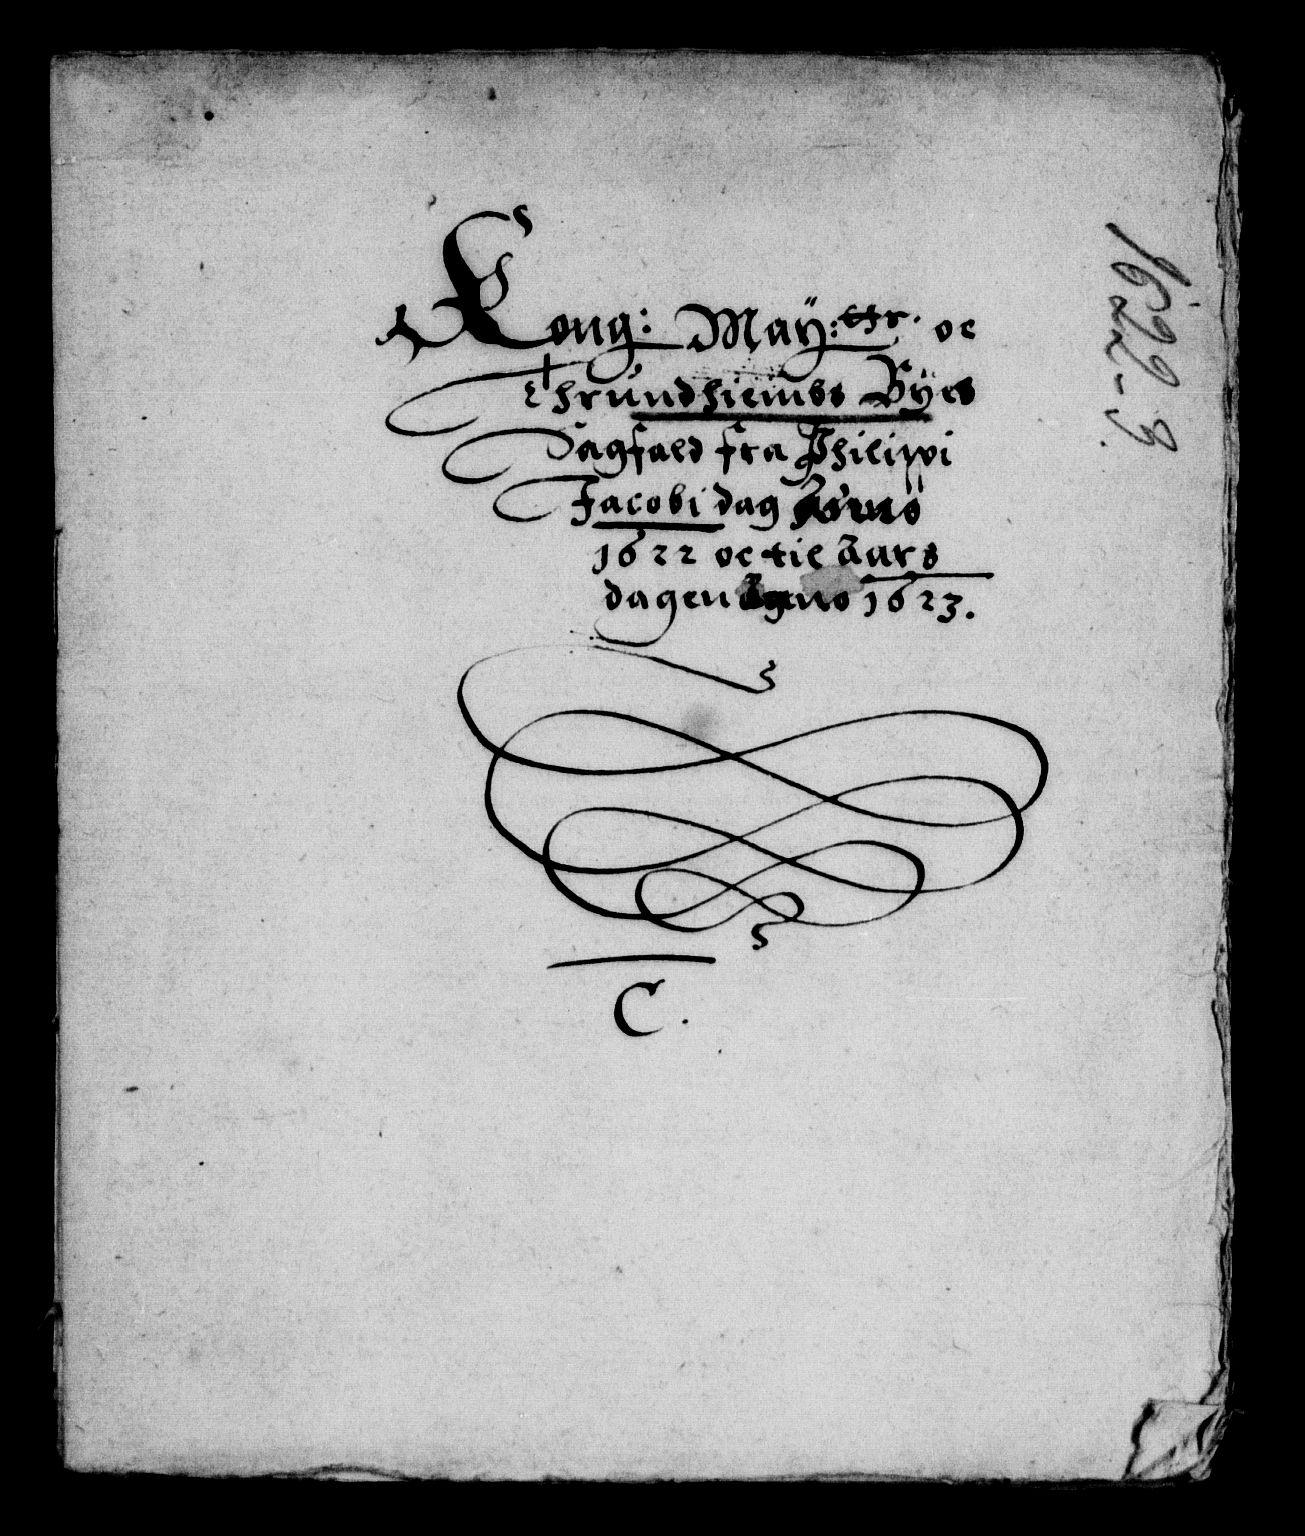 Kong: Maÿ: ttz. oc
thrúndhiembs Bÿes
Sagfald fra Philippi
Jacobi dag Anno
1622 oc til Aars
dagen Anno 1623.
C.
1622-3